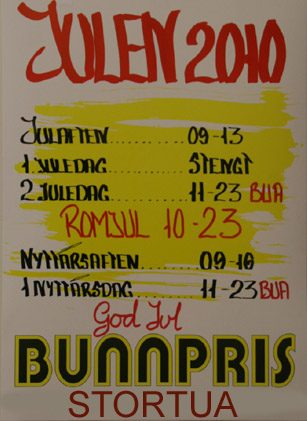 JULEN 2010
JULAFTEN.......... 09-13
1.JULEDAG.......... STENGT
2.JULEDAG.......... 11-23 BUA
ROMJUL 10-23
NYTTÅRSAFTEN....... 09-16
1 NYTTÅRSDAG....... 11-23 BUA
God Jul
BUNNPRIS
STORTUA